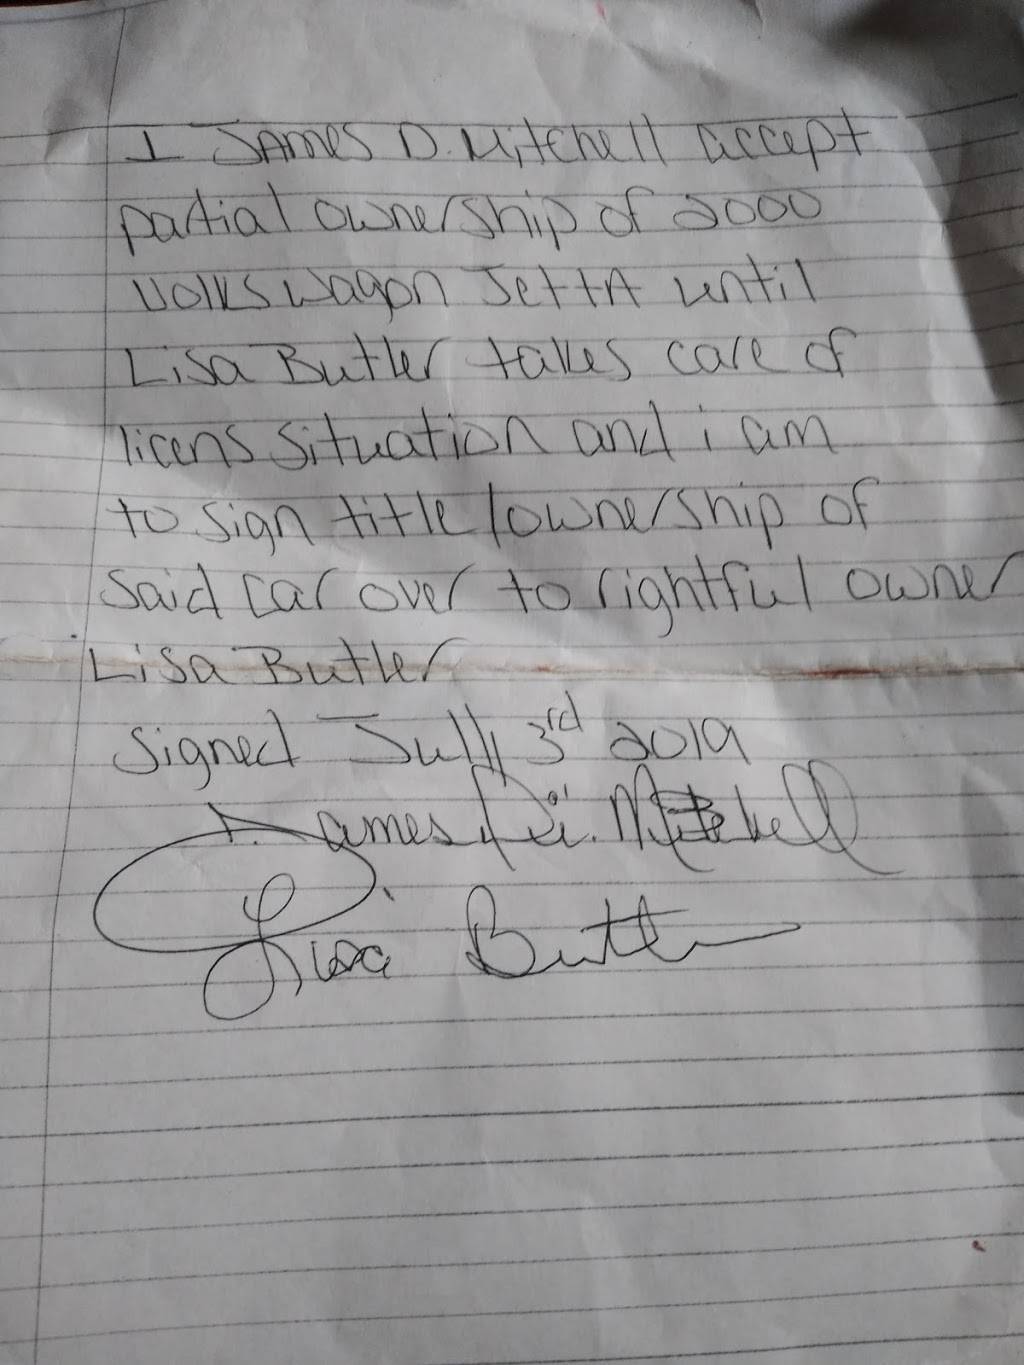 I JAMES D. Mitchell accept
partial ownership of 2000
Volkswagon Jetta until
Lisa Butler takes care of
licens situation and i am
to sign title/ownership of
said car over to rightful owner
Lisa Butler
signed July 3rd 2019
James Mitchell
Lisa Butler